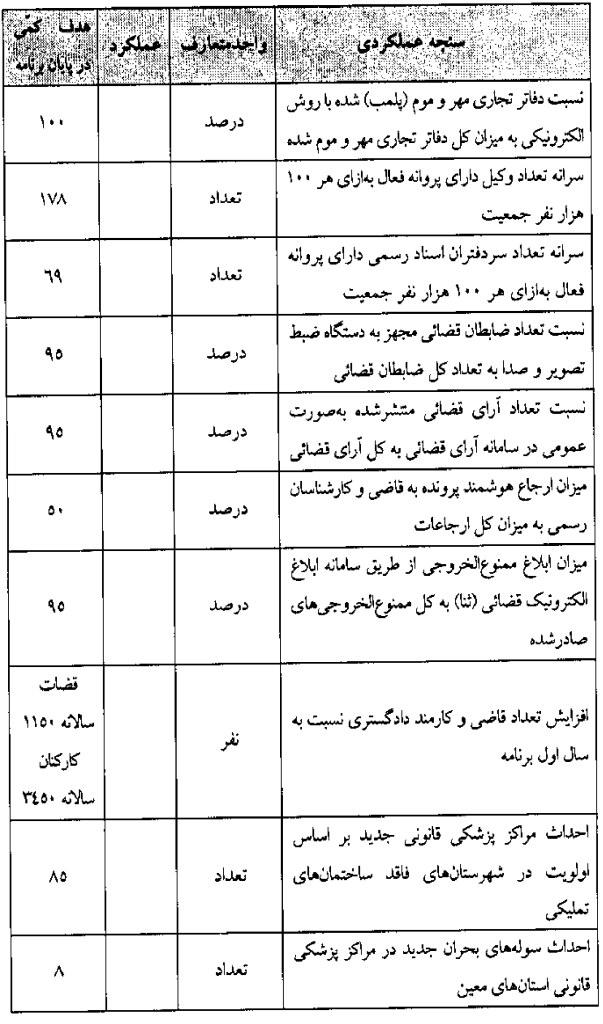 سنجه عملکردی واحدمتعارف عملکرد هدف کمّی در پایان برنامه
نسبت دفاتر تجاری مهر و موم (پلمب) شده با روش
الکترونیکی به میزان کل دفاتر تجاری مهر و موم شده
درصد
۱۰۰
سرانه تعداد وکیل دارای پروانه فعال به‌ازای هر ۱۰۰
هزار نفر جمعیت
تعداد
۱۷۸
سرانه تعداد سردفتران اسناد رسمی دارای پروانه
فعال به‌ازای هر ۱۰۰ هزار نفر جمعیت
تعداد
۶۹
نسبت تعداد ضابطان قضائی مجهز به دستگاه ضبط
تصویر و صدا به تعداد کل ضابطان قضائی
درصد
۹۵
نسبت تعداد آرای قضائی منتشرشده به‌صورت
عمومی در سامانه آرای قضائی به کل آرای قضائی
درصد
۹۵
میزان ارجاع هوشمند پرونده به قاضی و کارشناسان
رسمی به میزان کل ارجاعات
درصد
۵۰
میزان ابلاغ ممنوع‌الخروجی از طریق سامانه ابلاغ
الکترونیک قضائی (ثنا) به کل ممنوع‌الخروجی‌های
صادرشده
درصد
۹۵
افزایش تعداد قاضی و کارمند دادگستری نسبت به
سال اول برنامه
نفر
قضات
سالانه ۱۱۵۰
کارکنان
سالانه ۳٤۵۰
احداث مراکز پزشکی قانونی جدید بر اساس
اولویت در شهرستان‌های فاقد ساختمان‌های
تملیکی
تعداد
۸۵
احداث سوله‌های بحران جدید در مراکز پزشکی
قانونی استان‌های معین
تعداد
۸